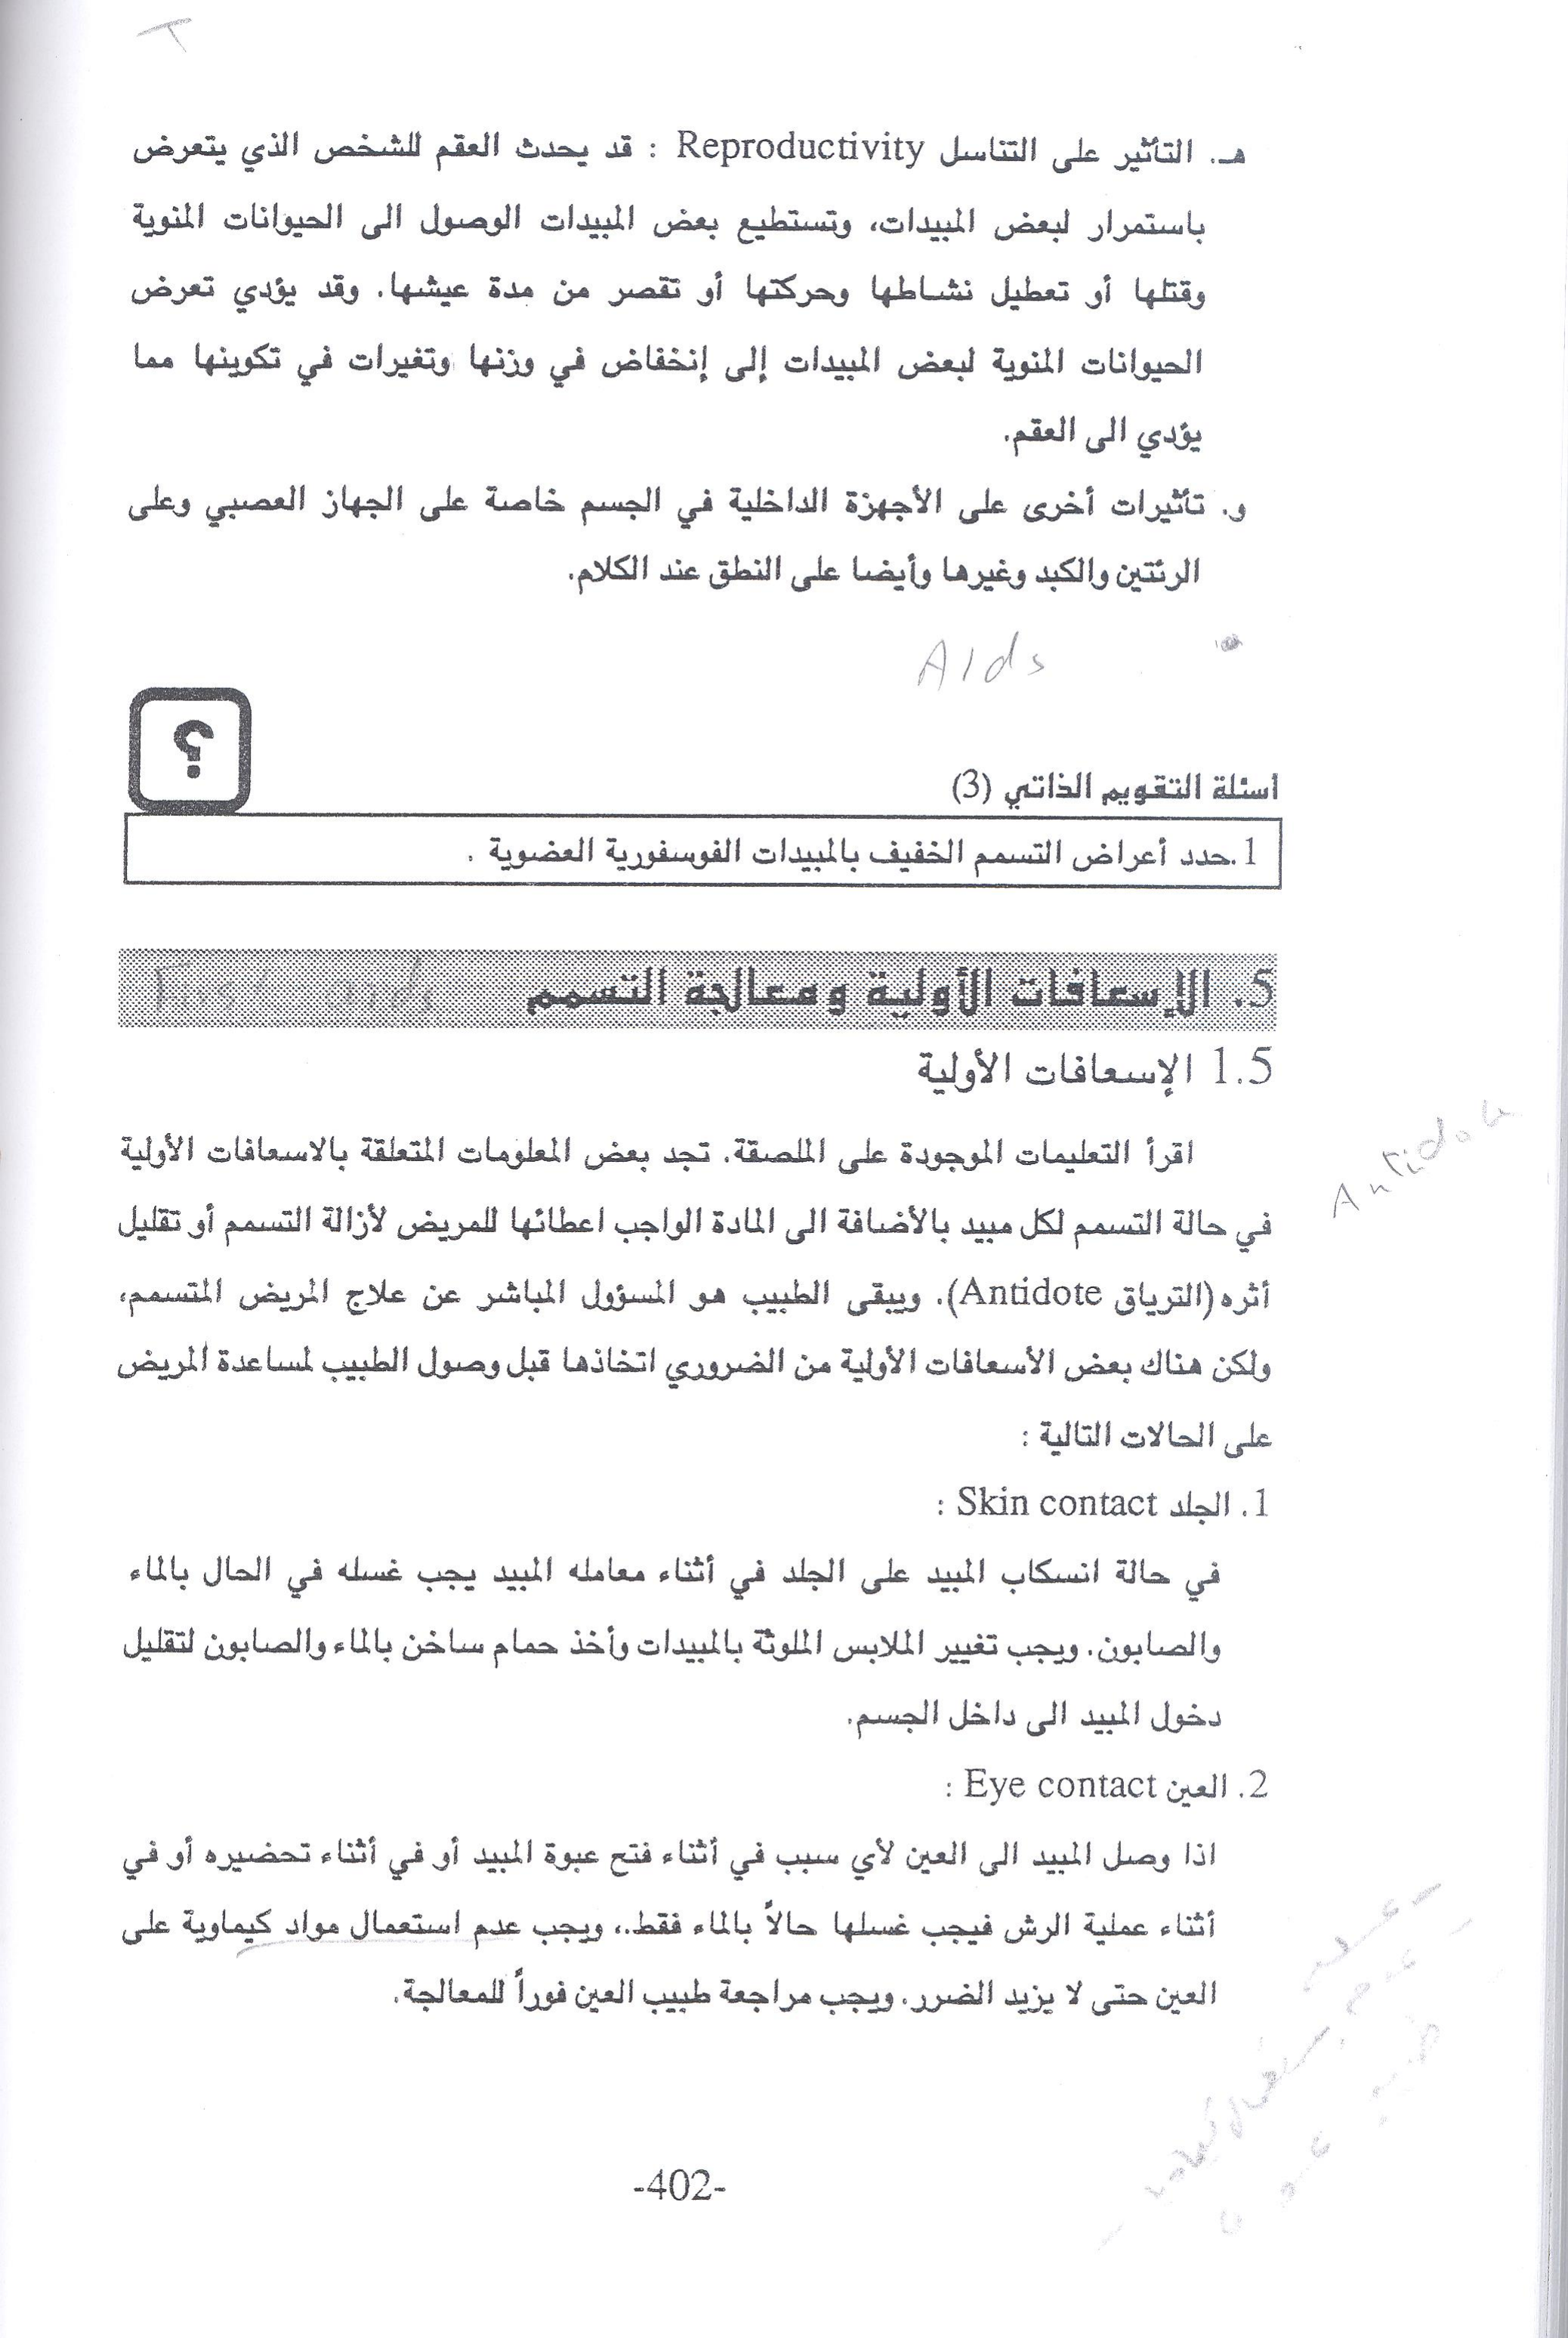 هـ. التأثير على التناسل Reproductivity : قد يحدث العقم للشخص الذي يتعرض
باستمرار لبعض المبيدات، وتستطيع بعض المبيدات الوصول الى الحيوانات المنوية
وقتلها أو تعطيل نشاطها وحركتها أو تقصر من مدة عيشها. وقد يؤدي تعرض
الحيوانات المنوية لبعض المبيدات إلى إنخفاض في وزنها وتغيرات في تكوينها مما
يؤدي الى العقم.
و. تأثيرات أخرى على الأجهزة الداخلية في الجسم خاصة على الجهاز العصبي وعلى
الرئتين والكبد وغيرها وأيضا على النطق عند الكلام.
Aids
؟
أسئلة التقويم الذاتي (3)
1.حدد أعراض التسمم الخفيف بالمبيدات الفوسفورية العضوية .
5. الإسعافات الأولية ومعالجة التسمم First aids
1.5 الإسعافات الأولية
اقرأ التعليمات الموجودة على الملصقة. تجد بعض المعلومات المتعلقة بالاسعافات الأولية
في حالة التسمم لكل مبيد بالأضافة الى المادة الواجب اعطائها للمريض لأزالة التسمم أو تقليل
أثره (الترياق Antidote). ويبقى الطبيب هو المسؤول المباشر عن علاج المريض المتسمم،
ولكن هناك بعض الأسعافات الأولية من الضروري اتخاذها قبل وصول الطبيب لمساعدة المريض
على الحالات التالية :
1. الجلد Skin contact :
في حالة انسكاب المبيد على الجلد في أثناء معامله المبيد يجب غسله في الحال بالماء
والصابون. ويجب تغيير الملابس الملوثة بالمبيدات وأخذ حمام ساخن بالماء والصابون لتقليل
دخول المبيد الى داخل الجسم.
2. العين Eye contact :
اذا وصل المبيد الى العين لأي سبب في أثناء فتح عبوة المبيد أو في أثناء تحضيره أو في
أثناء عملية الرش فيجب غسلها حالاً بالماء فقط.، ويجب عدم استعمال مواد كيماوية على
العين حتى لا يزيد الضرر. ويجب مراجعة طبيب العين فوراً للمعالجة.
-402-